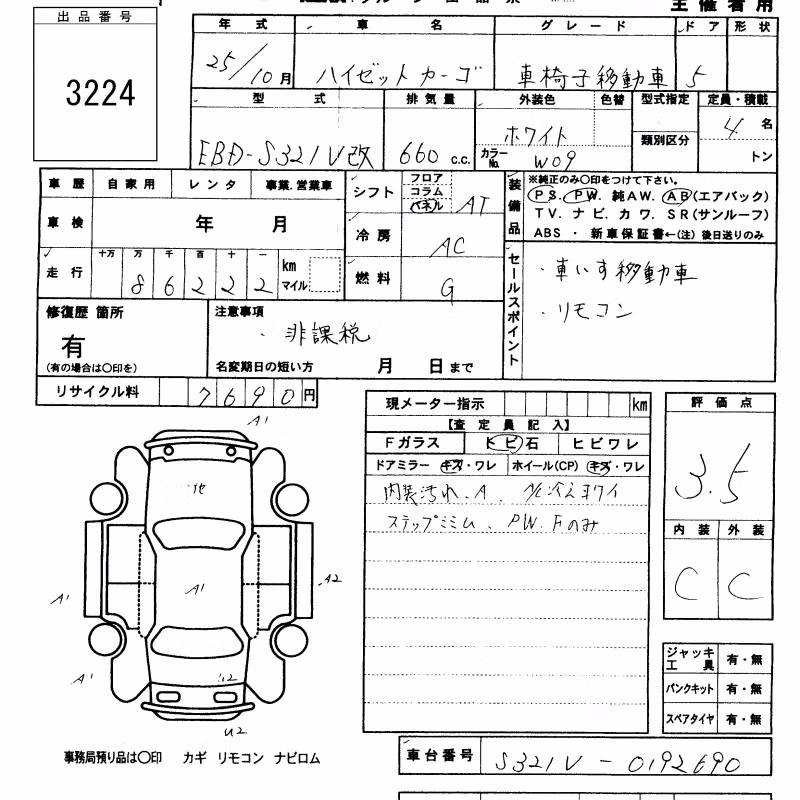 主催者用
出品番号
3224
年式 車名 グレード ドア 形状
25/10月 ハイゼットカーゴ 車椅子移動車 5
型式 排気量 外装色 色替 型式指定 定員・積載
EBD-S321V改 660 c.c. ホワイト 類別区分 4名
カラーNo. W09 トン
車歴 自家用 レンタ 事業.営業車
シフト フロア コラム パネル AT
車検 年 月
冷房 AC
走行 十万 万 千 百 十 一
86222 km マイル
燃料 G
装備品 ※純正のみ○印をつけて下さい。
PS. PW. 純AW. AB(エアバック)
TV. ナビ. カワ. SR(サンルーフ)
ABS・新車保証書←(注)後日送りのみ
セールスポイント
・車いす移動車
・リモコン
修復歴 箇所
有
(有の場合は○印を)
注意事項
・非課税
名変期日の短い方 月 日まで
リサイクル料 7690円
現メーター指示 km
【査定員記入】
Fガラス トビ石 ヒビワレ
ドアミラー キズ・ワレ ホイール(CP) キズ・ワレ
内装汚れ、A
ステップミミム、PW.Fのみ
評価点
3.5
内装 外装
C C
ジャッキ工具 有・無
パンクキット 有・無
スペアタイヤ 有・無
A1
A1
A1
A2
A1
U2
事務局預り品は○印 カギ リモコン ナビロム
車台番号 S321V-0192690